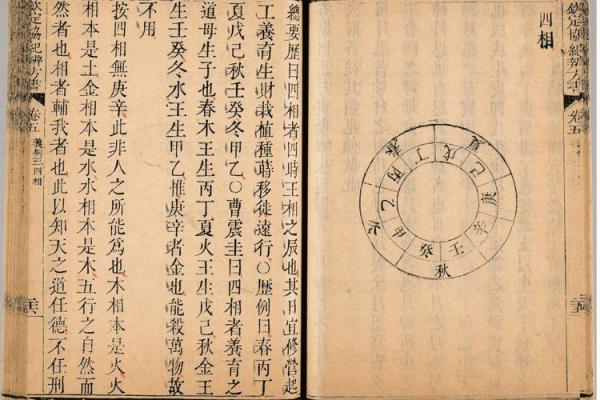 欽定協紀辨方書
卷五
四相
夏
春
冬
秋
丙
丁
戊
己
庚
辛
壬
癸
甲
乙
總要歷曰四相者四時王相之辰也其日宜修營起
工養育生財栽植種蒔移徙遠行〇歷例曰春丙丁
夏戊己秋壬癸冬甲乙〇曹震圭曰四相者養育之
道母生子也春木王生丙丁夏火王生戊己秋金王
生壬癸冬水王生甲乙惟庚辛者金也能殺萬物故
不用
按四相無庚辛此非人之所能爲也木相本是火火
相本是土金相本是水水相本是木五行之自然而
然者也相者輔我者也此以知天之道任德不任刑
欽定協紀辨方書
卷五
義例三 四相